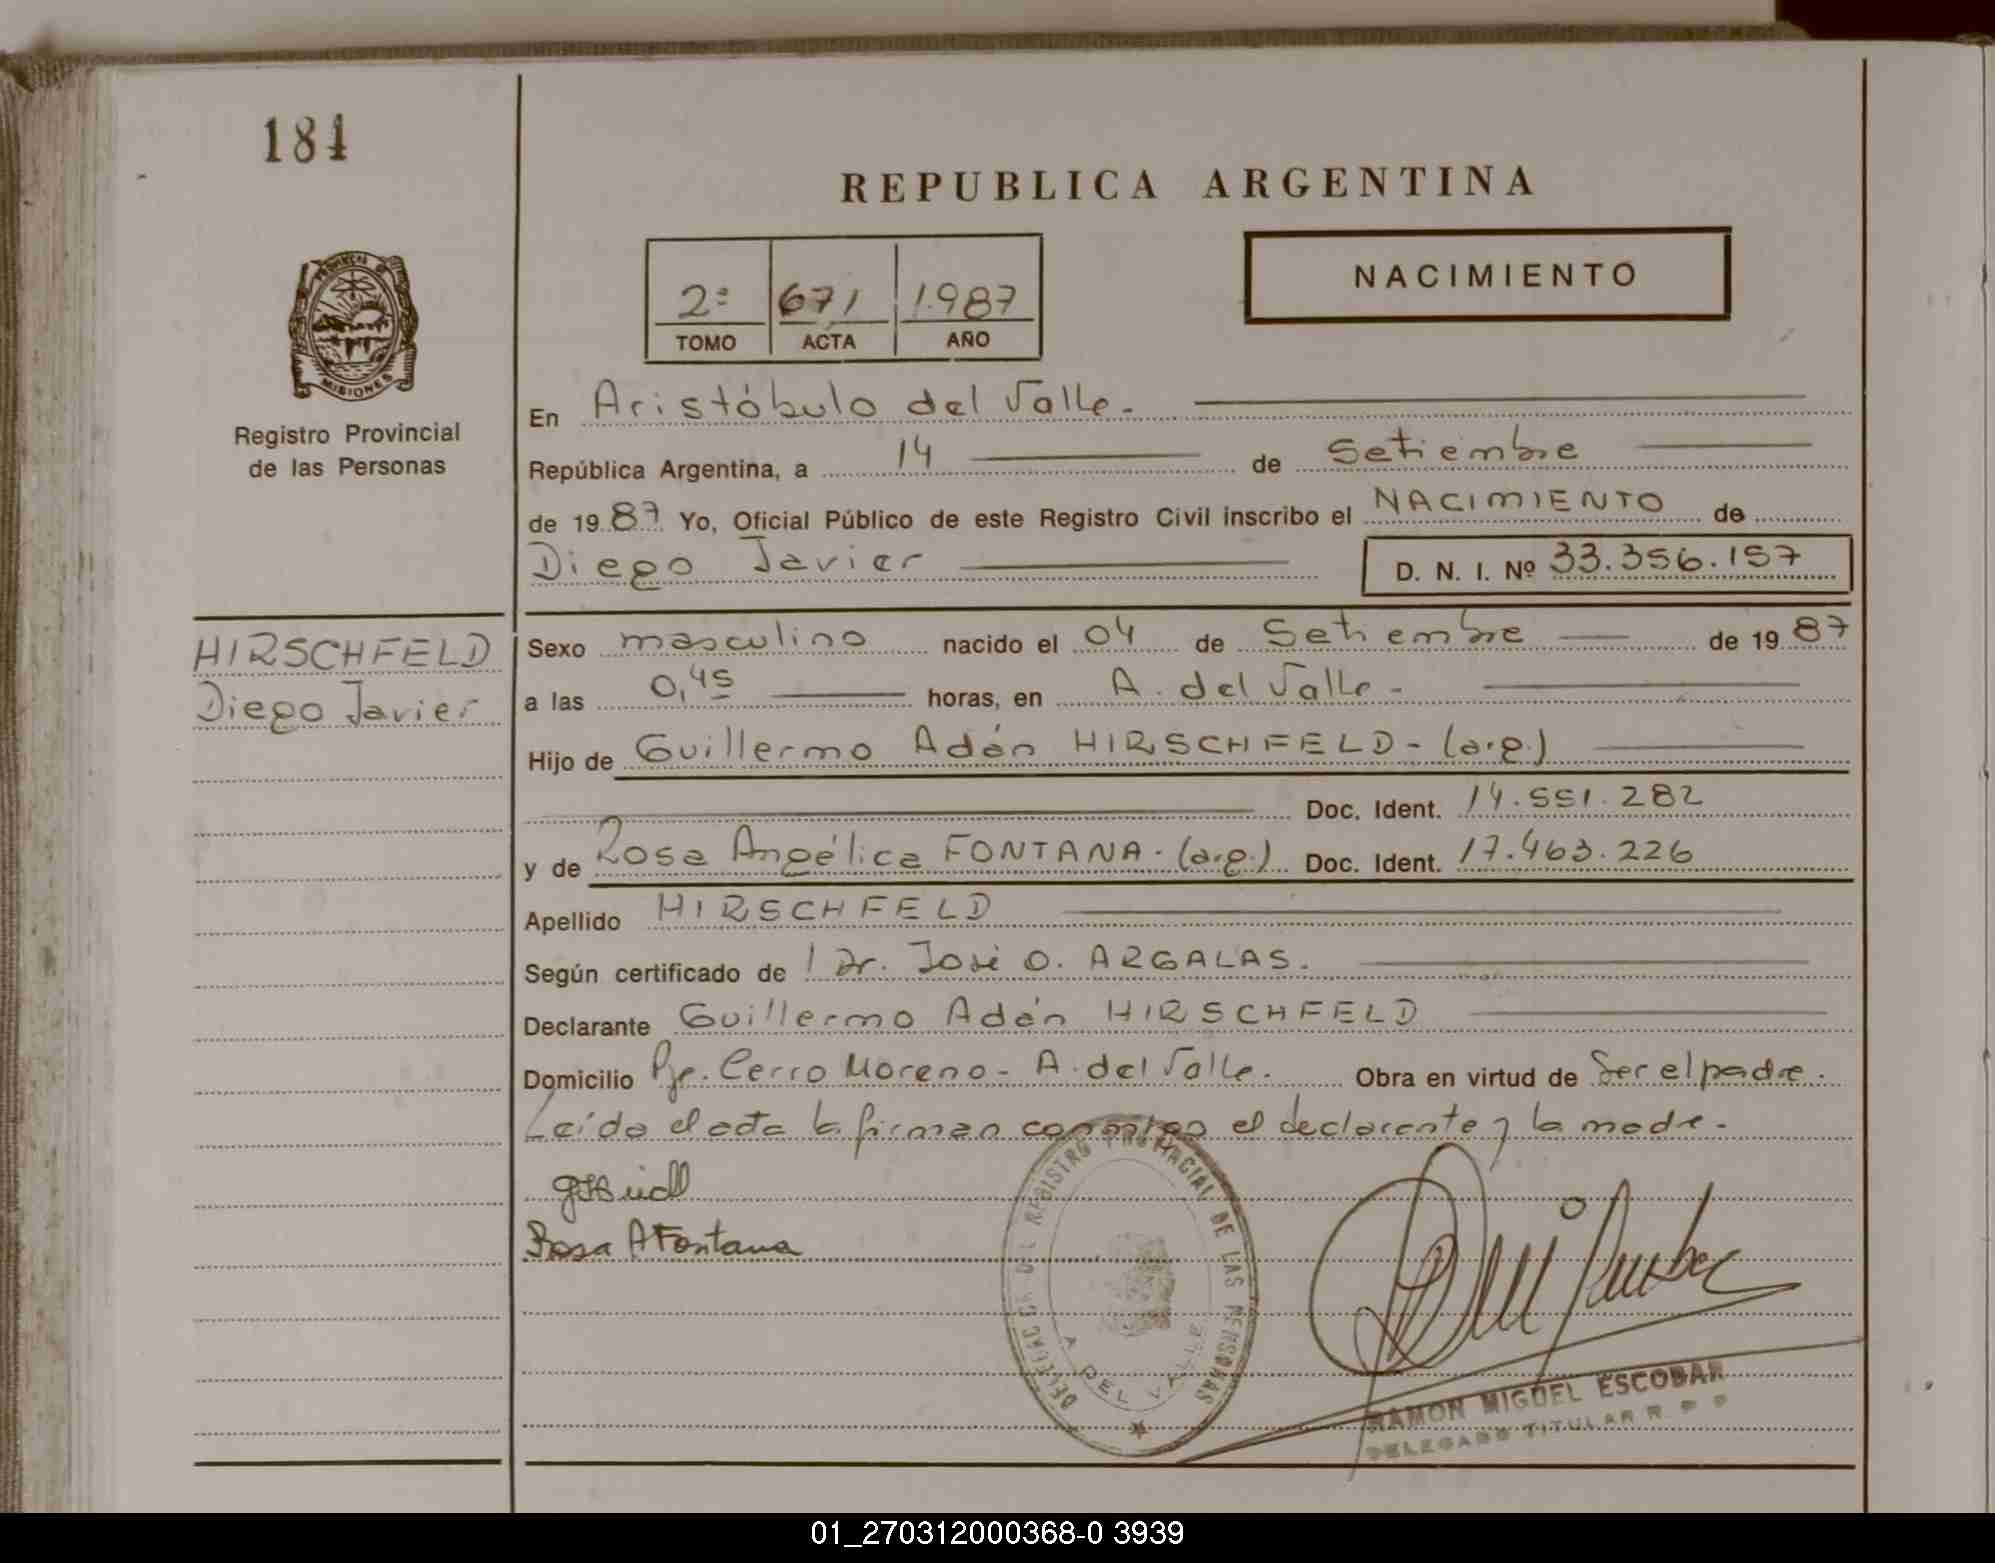 184
REPUBLICA ARGENTINA
2º 671 1.987
TOMO ACTA AÑO
NACIMIENTO
PROVINCIA DE
MISIONES
Registro Provincial
de las Personas
En Aristóbulo del Valle.
República Argentina, a 14 de Setiembre
de 1987 Yo, Oficial Público de este Registro Civil inscribo el NACIMIENTO de
Diego Javier D. N. I. Nº 33.356.157
HIRSCHFELD
Diego Javier
Sexo masculino nacido el 04 de Setiembre de 1987
a las 0,45 horas, en A. del Valle.
Hijo de Guillermo Adán HIRSCHFELD - (arg.)
Doc. Ident. 14.551.282
y de Rosa Angélica FONTANA. (arg.) Doc. Ident. 17.463.226
Apellido HIRSCHFELD
Según certificado de l Dr. José O. ARGALAS.
Declarante Guillermo Adán HIRSCHFELD
Domicilio Cerro Moreno - A. del Valle. Obra en virtud de Ser el padre.
Leída el acta la firman conmigo el declarante y la madre.
Rosa A Fontana
DELEGAC DEL REGISTRO PROVINCIAL DE LAS PERSONAS
A DEL VALLE
RAMON MIGUEL ESCOBAR
DELEGADO TITULAR R P P
01_270312000368-0 3939